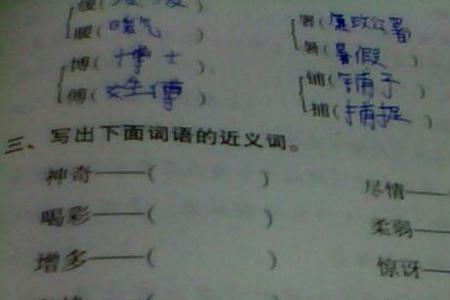 缓(
暖(暖气)
博(博士)
傅(师傅)
署(廉政公署)
暑(暑假)
铺(铺子)
捕(捕捉)
三、写出下面词语的近义词。
神奇——( ) 尽情——
喝彩——( ) 柔弱——
增多——( ) 惊讶——